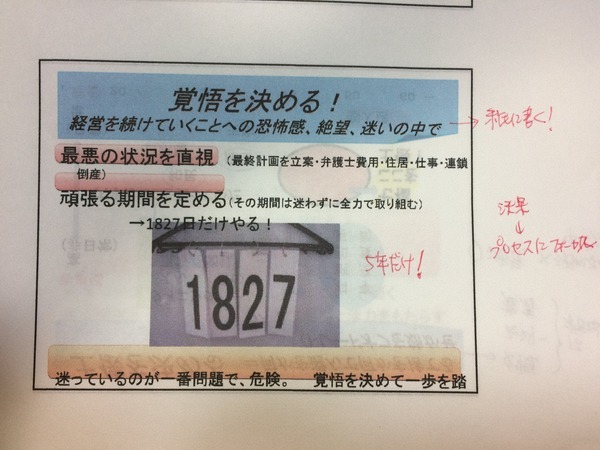 覚悟を決める！
経営を続けていくことへの恐怖感、絶望、迷いの中で
紙に書く！
最悪の状況を直視（最終計画を立案・弁護士費用・住居・仕事・連鎖
倒産）
頑張る期間を定める（その期間は迷わずに全力で取り組む）
→1827日だけやる！
1827
5年だけ！
結果
↓
プロセスにフォーカス
迷っているのが一番問題で、危険。　覚悟を決めて一歩を踏